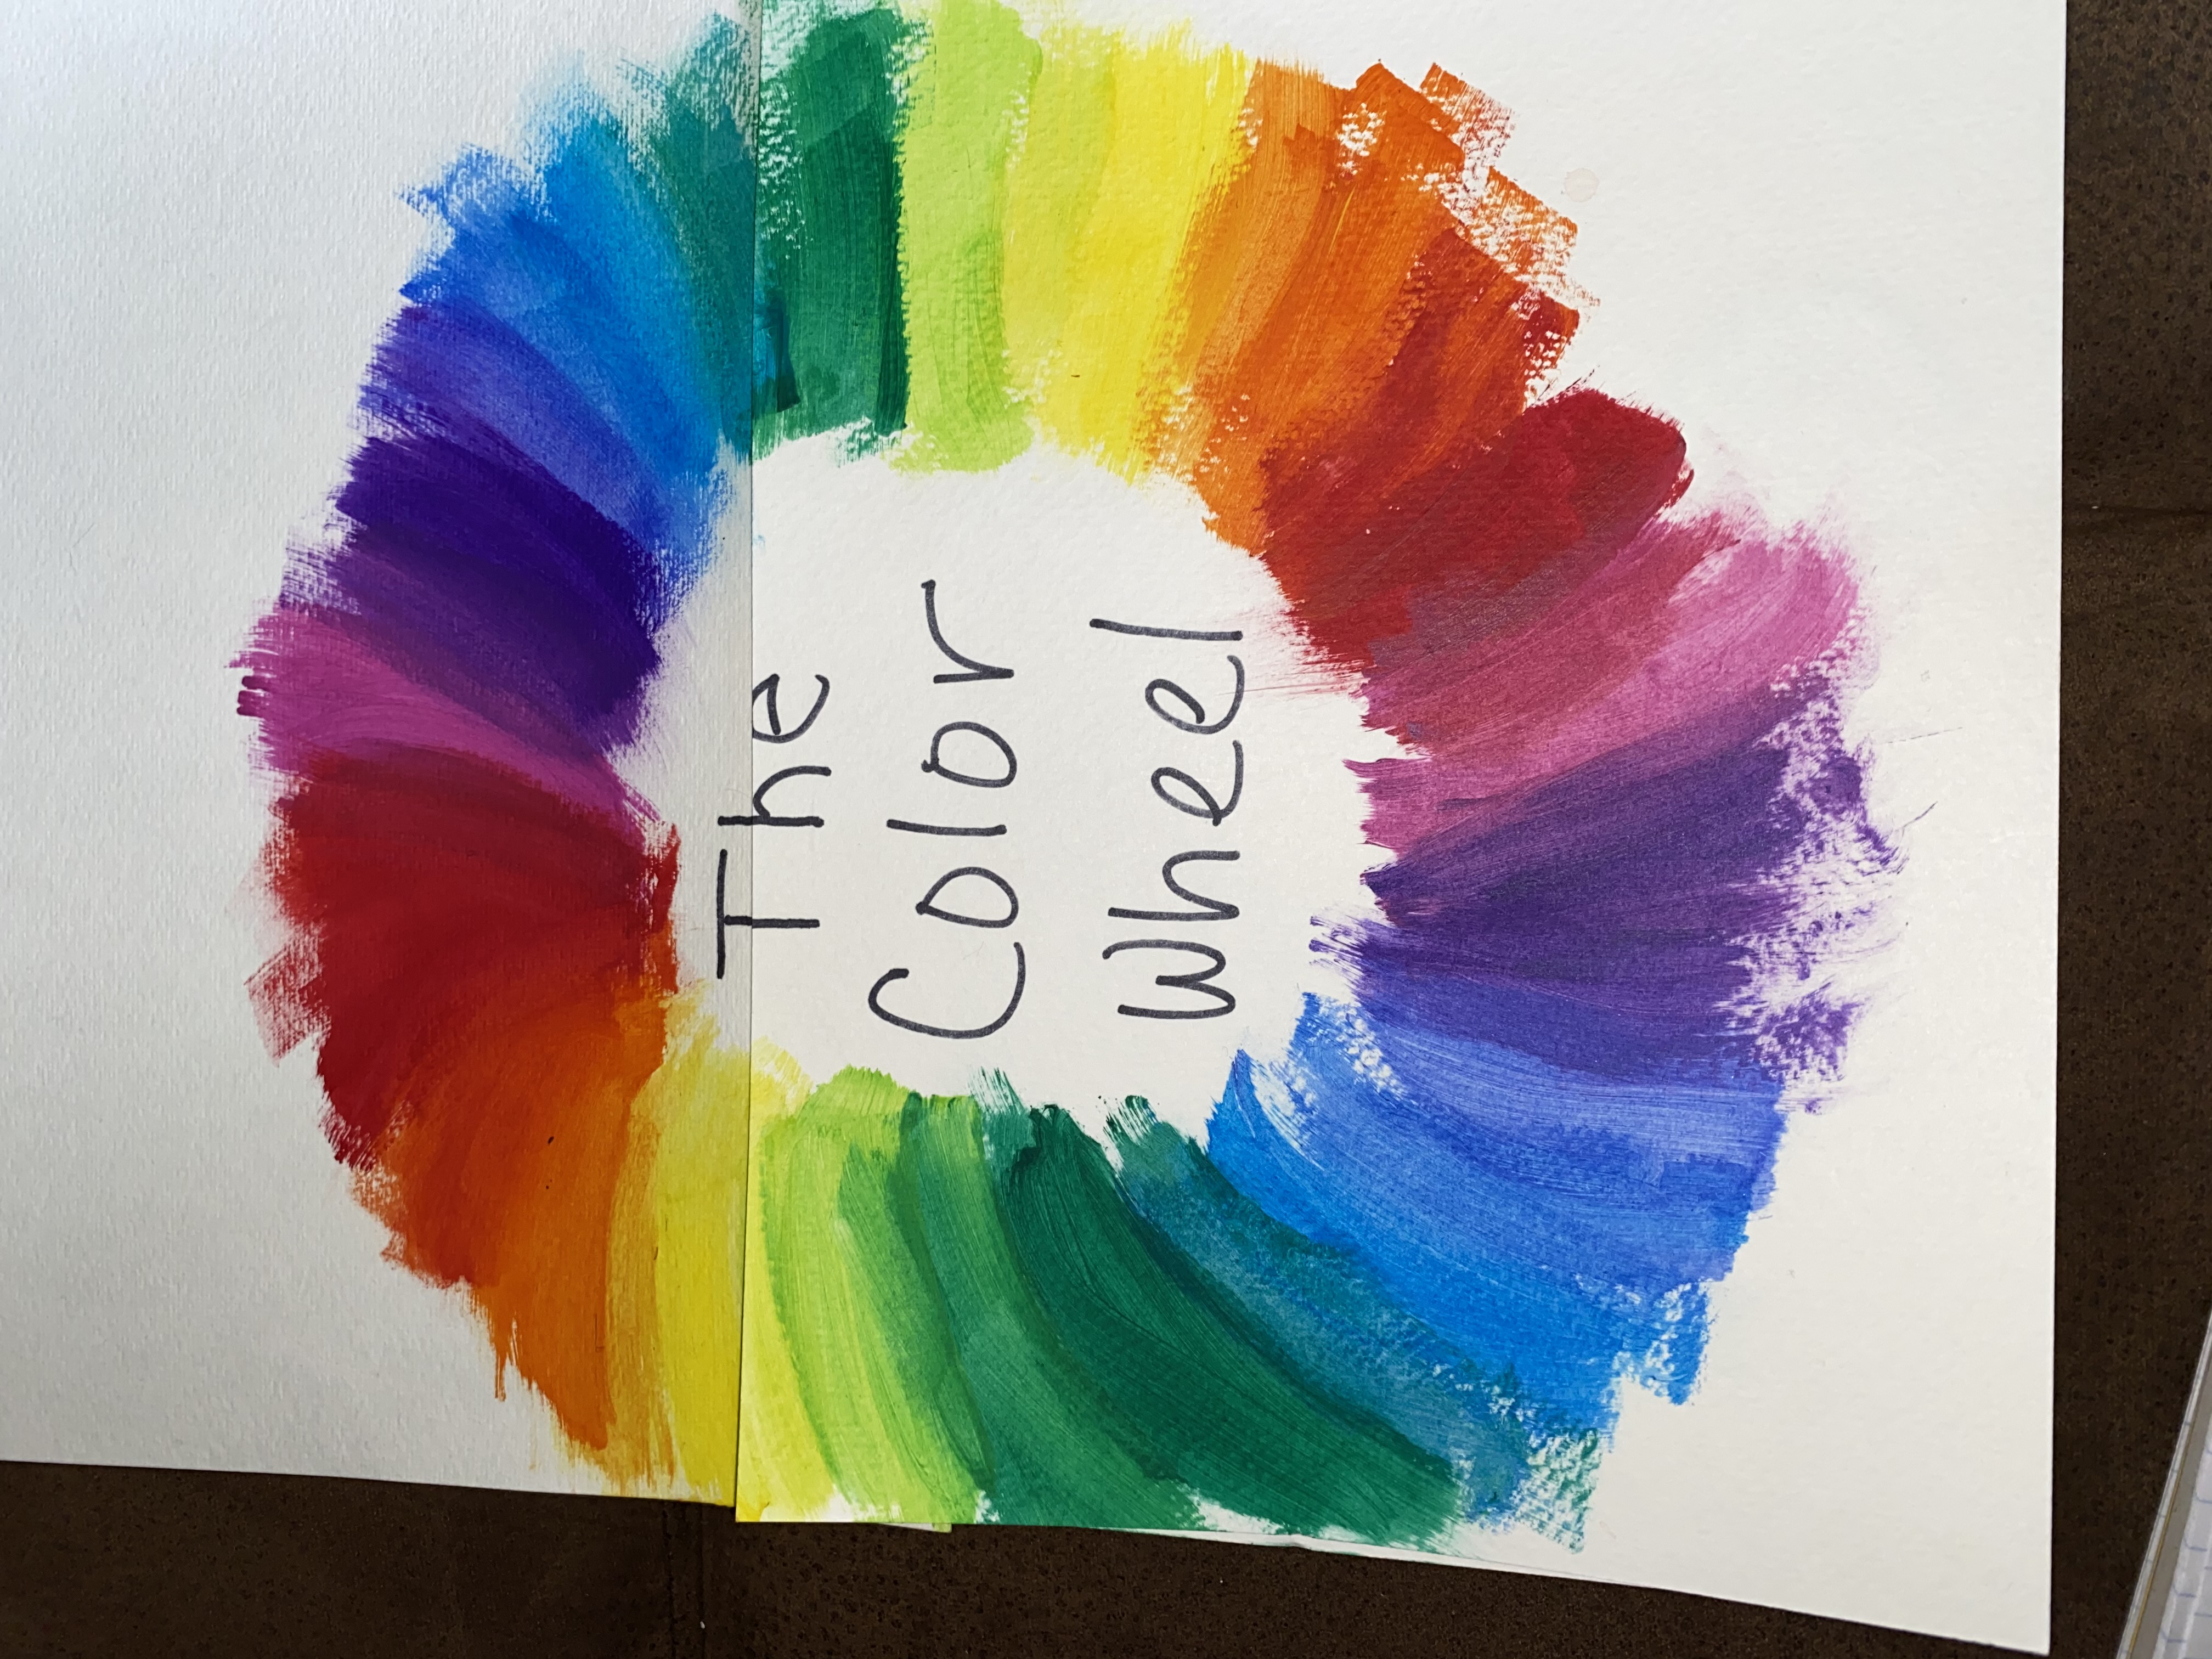 The
Color
Wheel